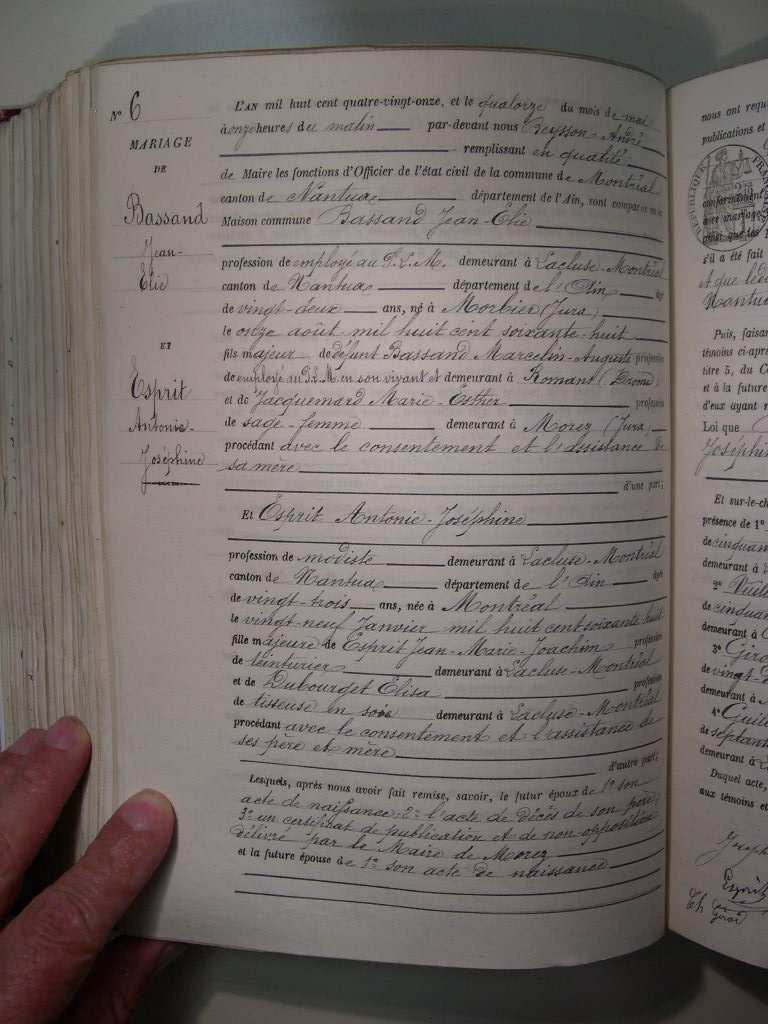 N° 6
MARIAGE
DE
Bassand
Jean-
Elie
ET
Esprit
Antonie-
Joséphine
L'AN mil huit cent quatre-vingt-onze, et le quatorze du mois de mai
à onze heures du matin par-devant nous Reysson André
remplissant en qualité
de Maire les fonctions d'Officier de l'état civil de la commune de Montréal
canton de Nantua département de l'Ain, sont comparus en la
Maison commune Bassand Jean-Elie
profession de employé au P.L.M. demeurant à Lacluse-Montréal
canton de Nantua département de l'Ain âgé
de vingt-deux ans, né à Morbier (Jura)
le onze août mil huit cent soixante-huit
fils majeur de défunt Bassand Marcelin-Auguste profession
de employé au P.L.M. en son vivant et demeurant à Romans (Drôme)
et de Jacquemard Marie-Esther profession
de sage-femme demeurant à Morez (Jura)
procédant avec le consentement et l'assistance de
sa mère
d'une part;
Et Esprit Antonie-Joséphine
profession de modiste demeurant à Lacluse-Montréal
canton de Nantua département de l'Ain âgée
de vingt-trois ans, née à Montréal
le vingt-neuf Janvier mil huit cent soixante huit
fille majeure de Esprit Jean-Marie-Joachim profession
de teinturier demeurant à Lacluse-Montréal
et de Dubourget Elisa profession
de tisseuse en soie demeurant à Lacluse-Montréal
procédant avec le consentement et l'assistance de
ses père et mère
d'autre part;
Lesquels, après nous avoir fait remise, savoir, le futur époux de 1° son
acte de naissance; 2° l'acte de décès de son père;
3° un certificat de publication et de non opposition
délivré par le Maire de Morez
et la future épouse de 1° son acte de naissance
nous ont requ
publications et
RÉPUBLIQUE FRANÇAISE
conformément
ainsi que les
s'il a été fait
et que led
Nantua
Puis, faisan
témoins ci-aprè
titre 5, du Co
et à la future
d'eux ayant r
Loi que
Joséphin
Et sur-le-ch
présence de 1°
de cinquan
demeurant à
2° Vuill
de cinqua
demeurant à
3° Giro
de vingt-
demeurant à
4° Guill
de septant
demeurant à
Duquel acte,
aux témoins et
Esprit
Th Girod